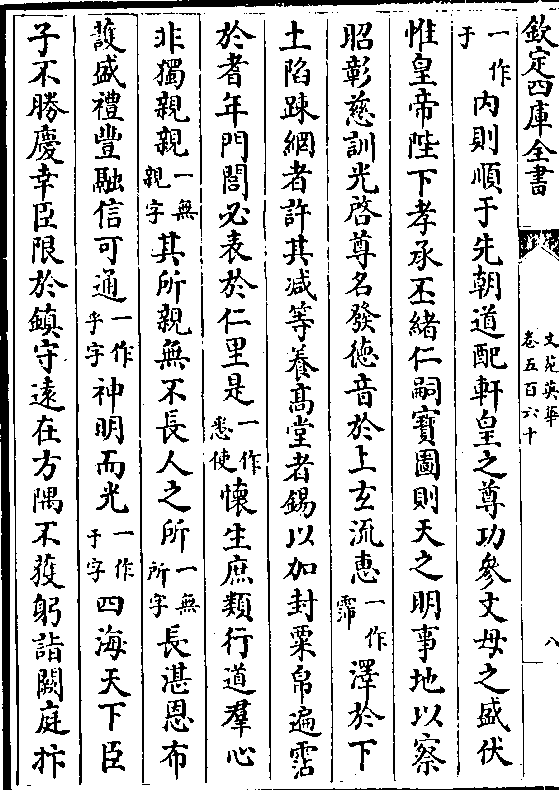 欽定四庫全書
文苑英華
卷五百六十
八
一作于內則順于先朝道配軒皇之尊功參文母之盛伏
惟皇帝陛下孝承丕緒仁嗣寶圖則天之明事地以察
昭彰慈訓光啓尊名發德音於上玄流惠一作霈澤於下
土陷踈網者許其減等養高堂者錫以加封粟帛遍霑
於耆年門閭必表於仁里是一作悉使懷生庶類行道羣心
非獨親親一無親字其所親無不長人之所一無所字長湛恩布
護盛禮豐融信可通一作乎字神明而光一作于字四海天下臣
子不勝慶幸臣限於鎮守遠在方隅不獲躬詣闕庭抃